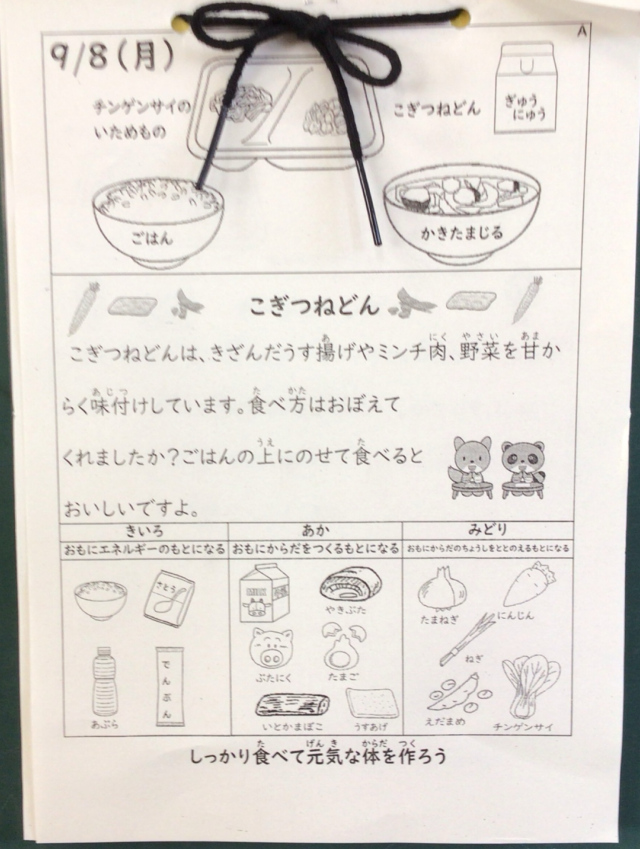 A
9/8(月)
チンゲンサイの
いためもの
こぎつねどん
ぎゅう
にゅう
ごはん
かきたまじる
こぎつねどん
こぎつねどんは、きざんだうす揚げやミンチ肉、野菜を甘か
らく味付けしています。食べ方はおぼえて
くれましたか?ごはんの上にのせて食べると
おいしいですよ。
きいろ
あか
みどり
おもにエネルギーのもとになる
おもにからだをつくるもとになる
おもにからだのちょうしをととのえるもとになる
さとう
あぶら
でんぷん
やきぶた
ぶたにく
たまご
いとかまぼこ
うすあげ
たまねぎ
にんじん
ねぎ
えだまめ
チンゲンサイ
しっかり食べて元気な体を作ろう